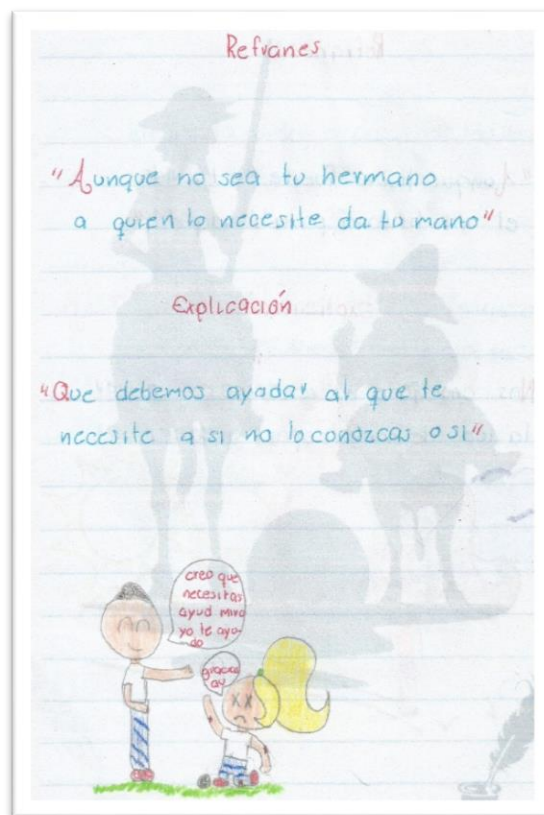 Refranes
"Aunque no sea tu hermano
a quien lo necesite da tu mano"
Explicación
"Que debemos ayadar al que te
necesite a si no lo conozcas o si"
creo que
necesitas
ayud mira
yo te ayu-
do
gracias
ay